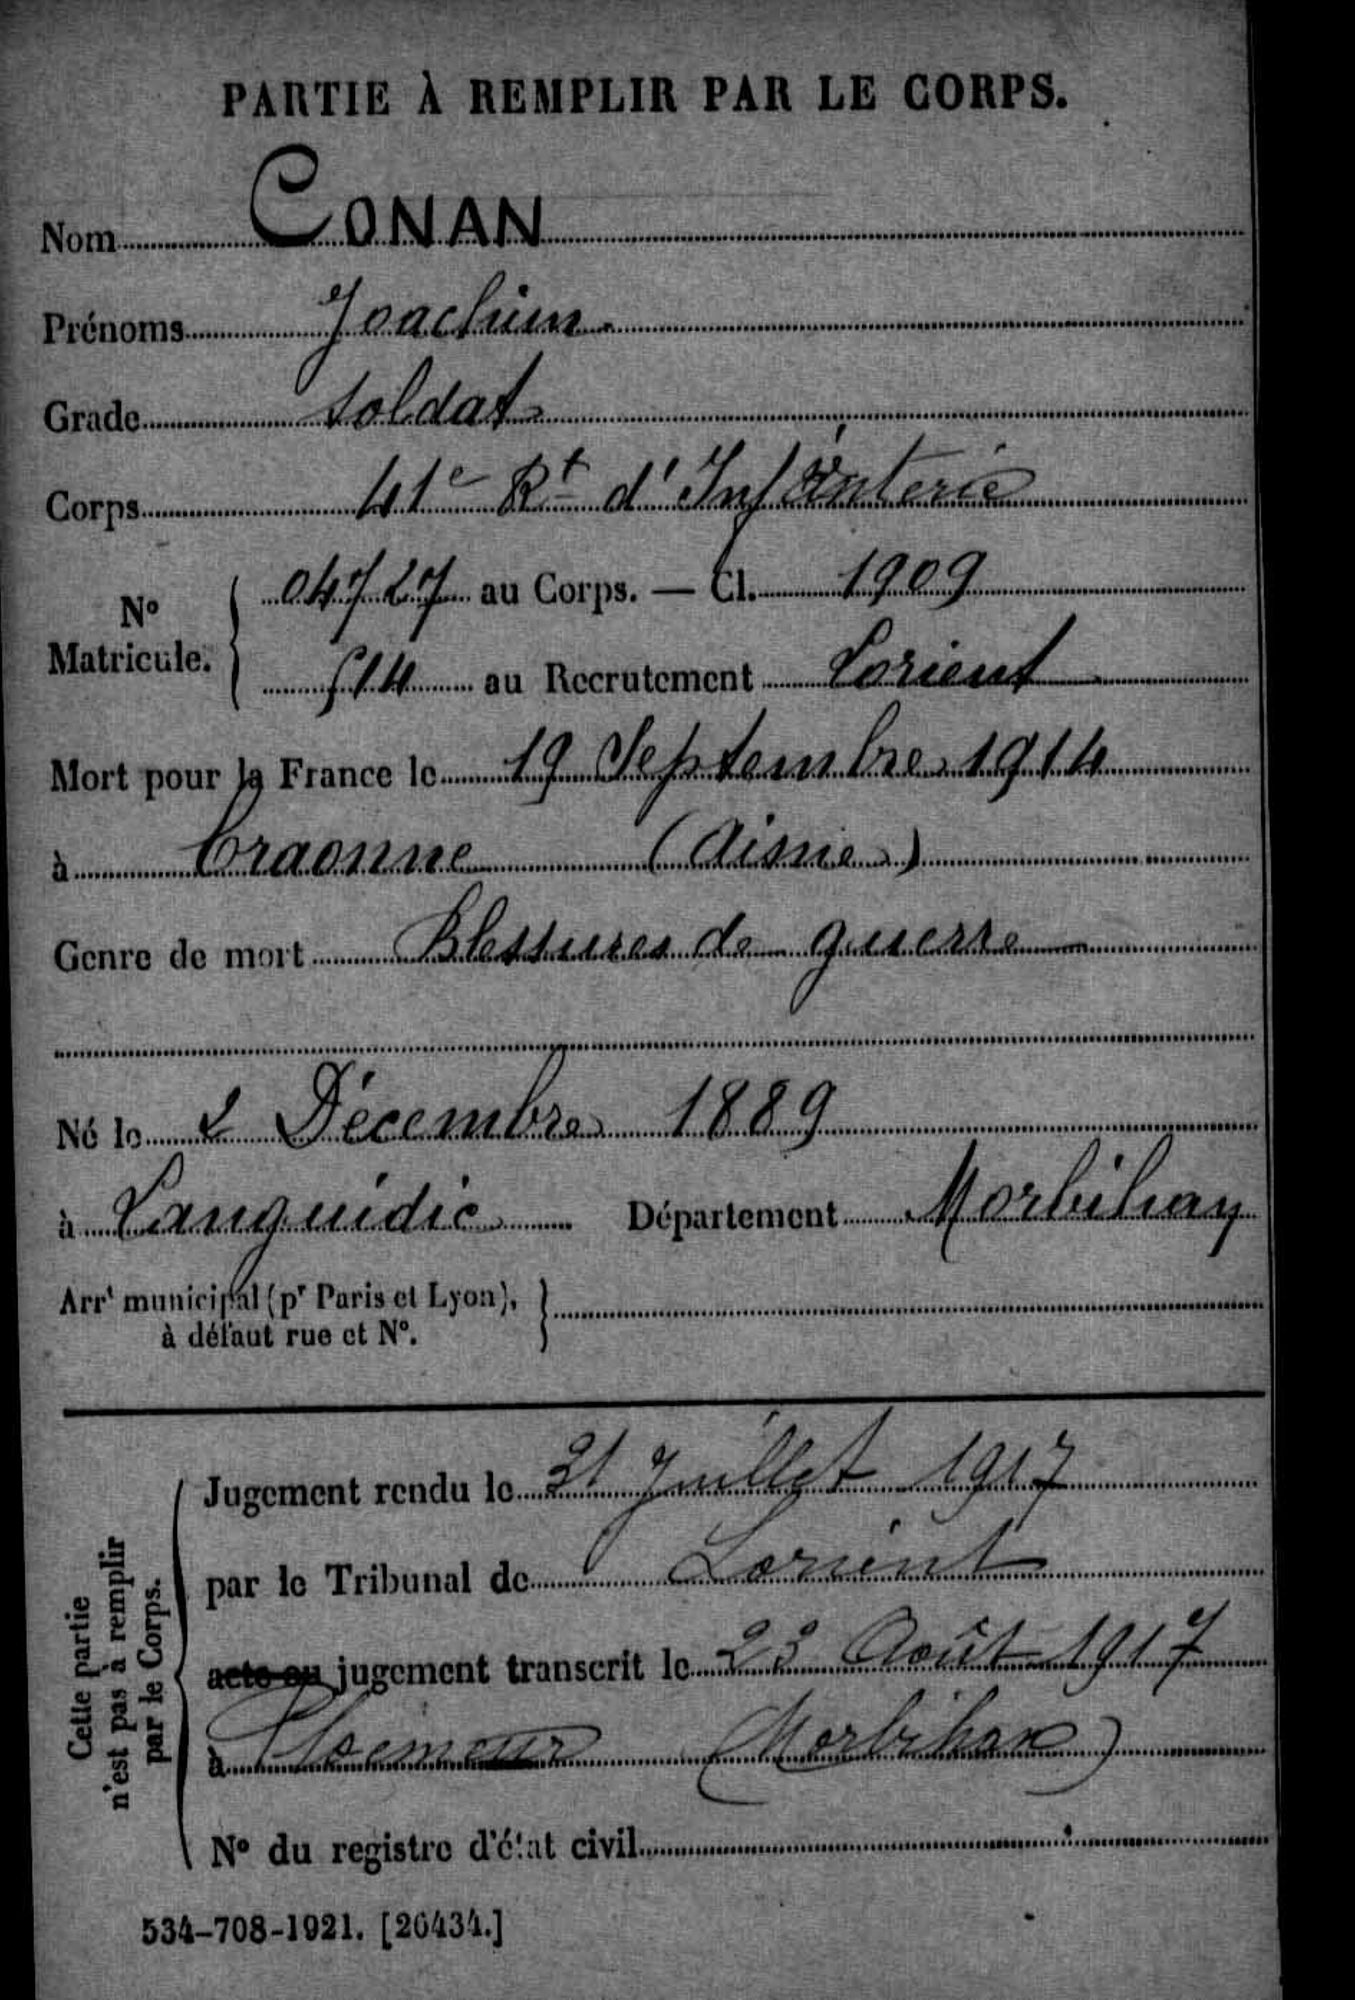 PARTIE À REMPLIR PAR LE CORPS.
Nom CONAN
Prénoms Joachim
Grade soldat
Corps 41e Rt d'Infanterie
No Matricule. 04727 au Corps. — Cl. 1909
514 au Recrutement Lorient
Mort pour la France le 19 Septembre 1914
à Craonne (Aisne)
Genre de mort Blessures de guerre
Né le 2 Décembre 1889
à Languidic Département Morbihan
Arrt municipal (pr Paris et Lyon),
à défaut rue et No.
Cette partie
n'est pas à remplir
par le Corps.
Jugement rendu le 31 Juillet 1917
par le Tribunal de Lorient
acte ou jugement transcrit le 23 Août 1917
à Ploemeur (Morbihan)
No du registre d'état civil
534-708-1921. [26434.]